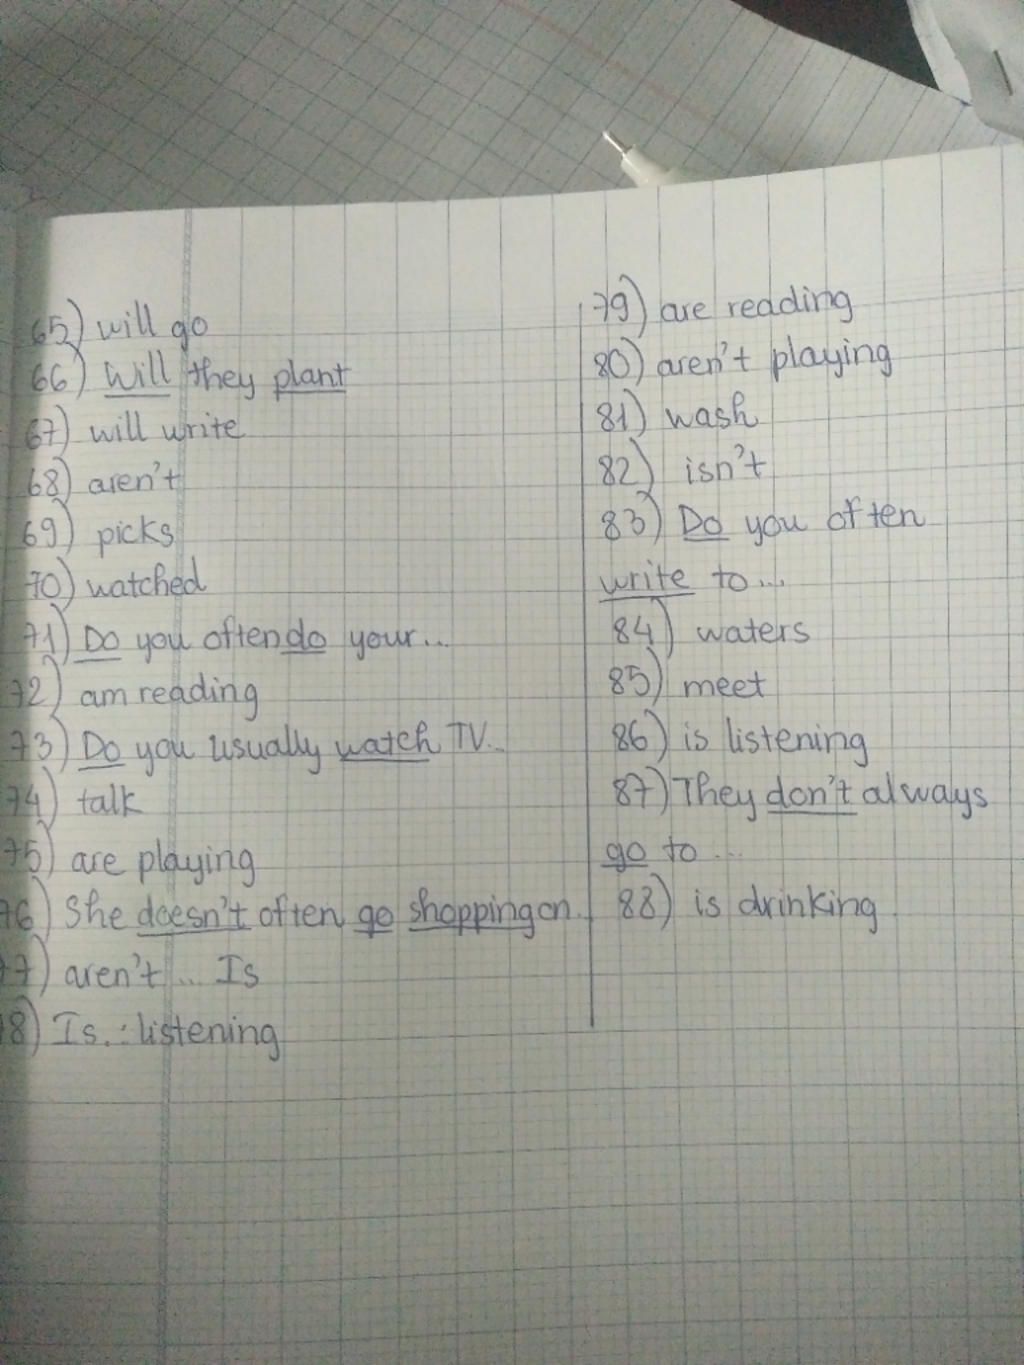 65) will go
66) Will they plant
67) will write
68) aren't
69) picks
70) watched
71) Do you often do your...
72) am reading
73) Do you usually watch TV...
74) talk
75) are playing
76) She doesn't often go shopping on.
77) aren't ... Is
8) Is...listening
79) are reading
80) aren't playing
81) wash
82) isn't
83) Do you often
write to...
84) waters
85) meet
86) is listening
87) They don't always
go to...
88) is drinking